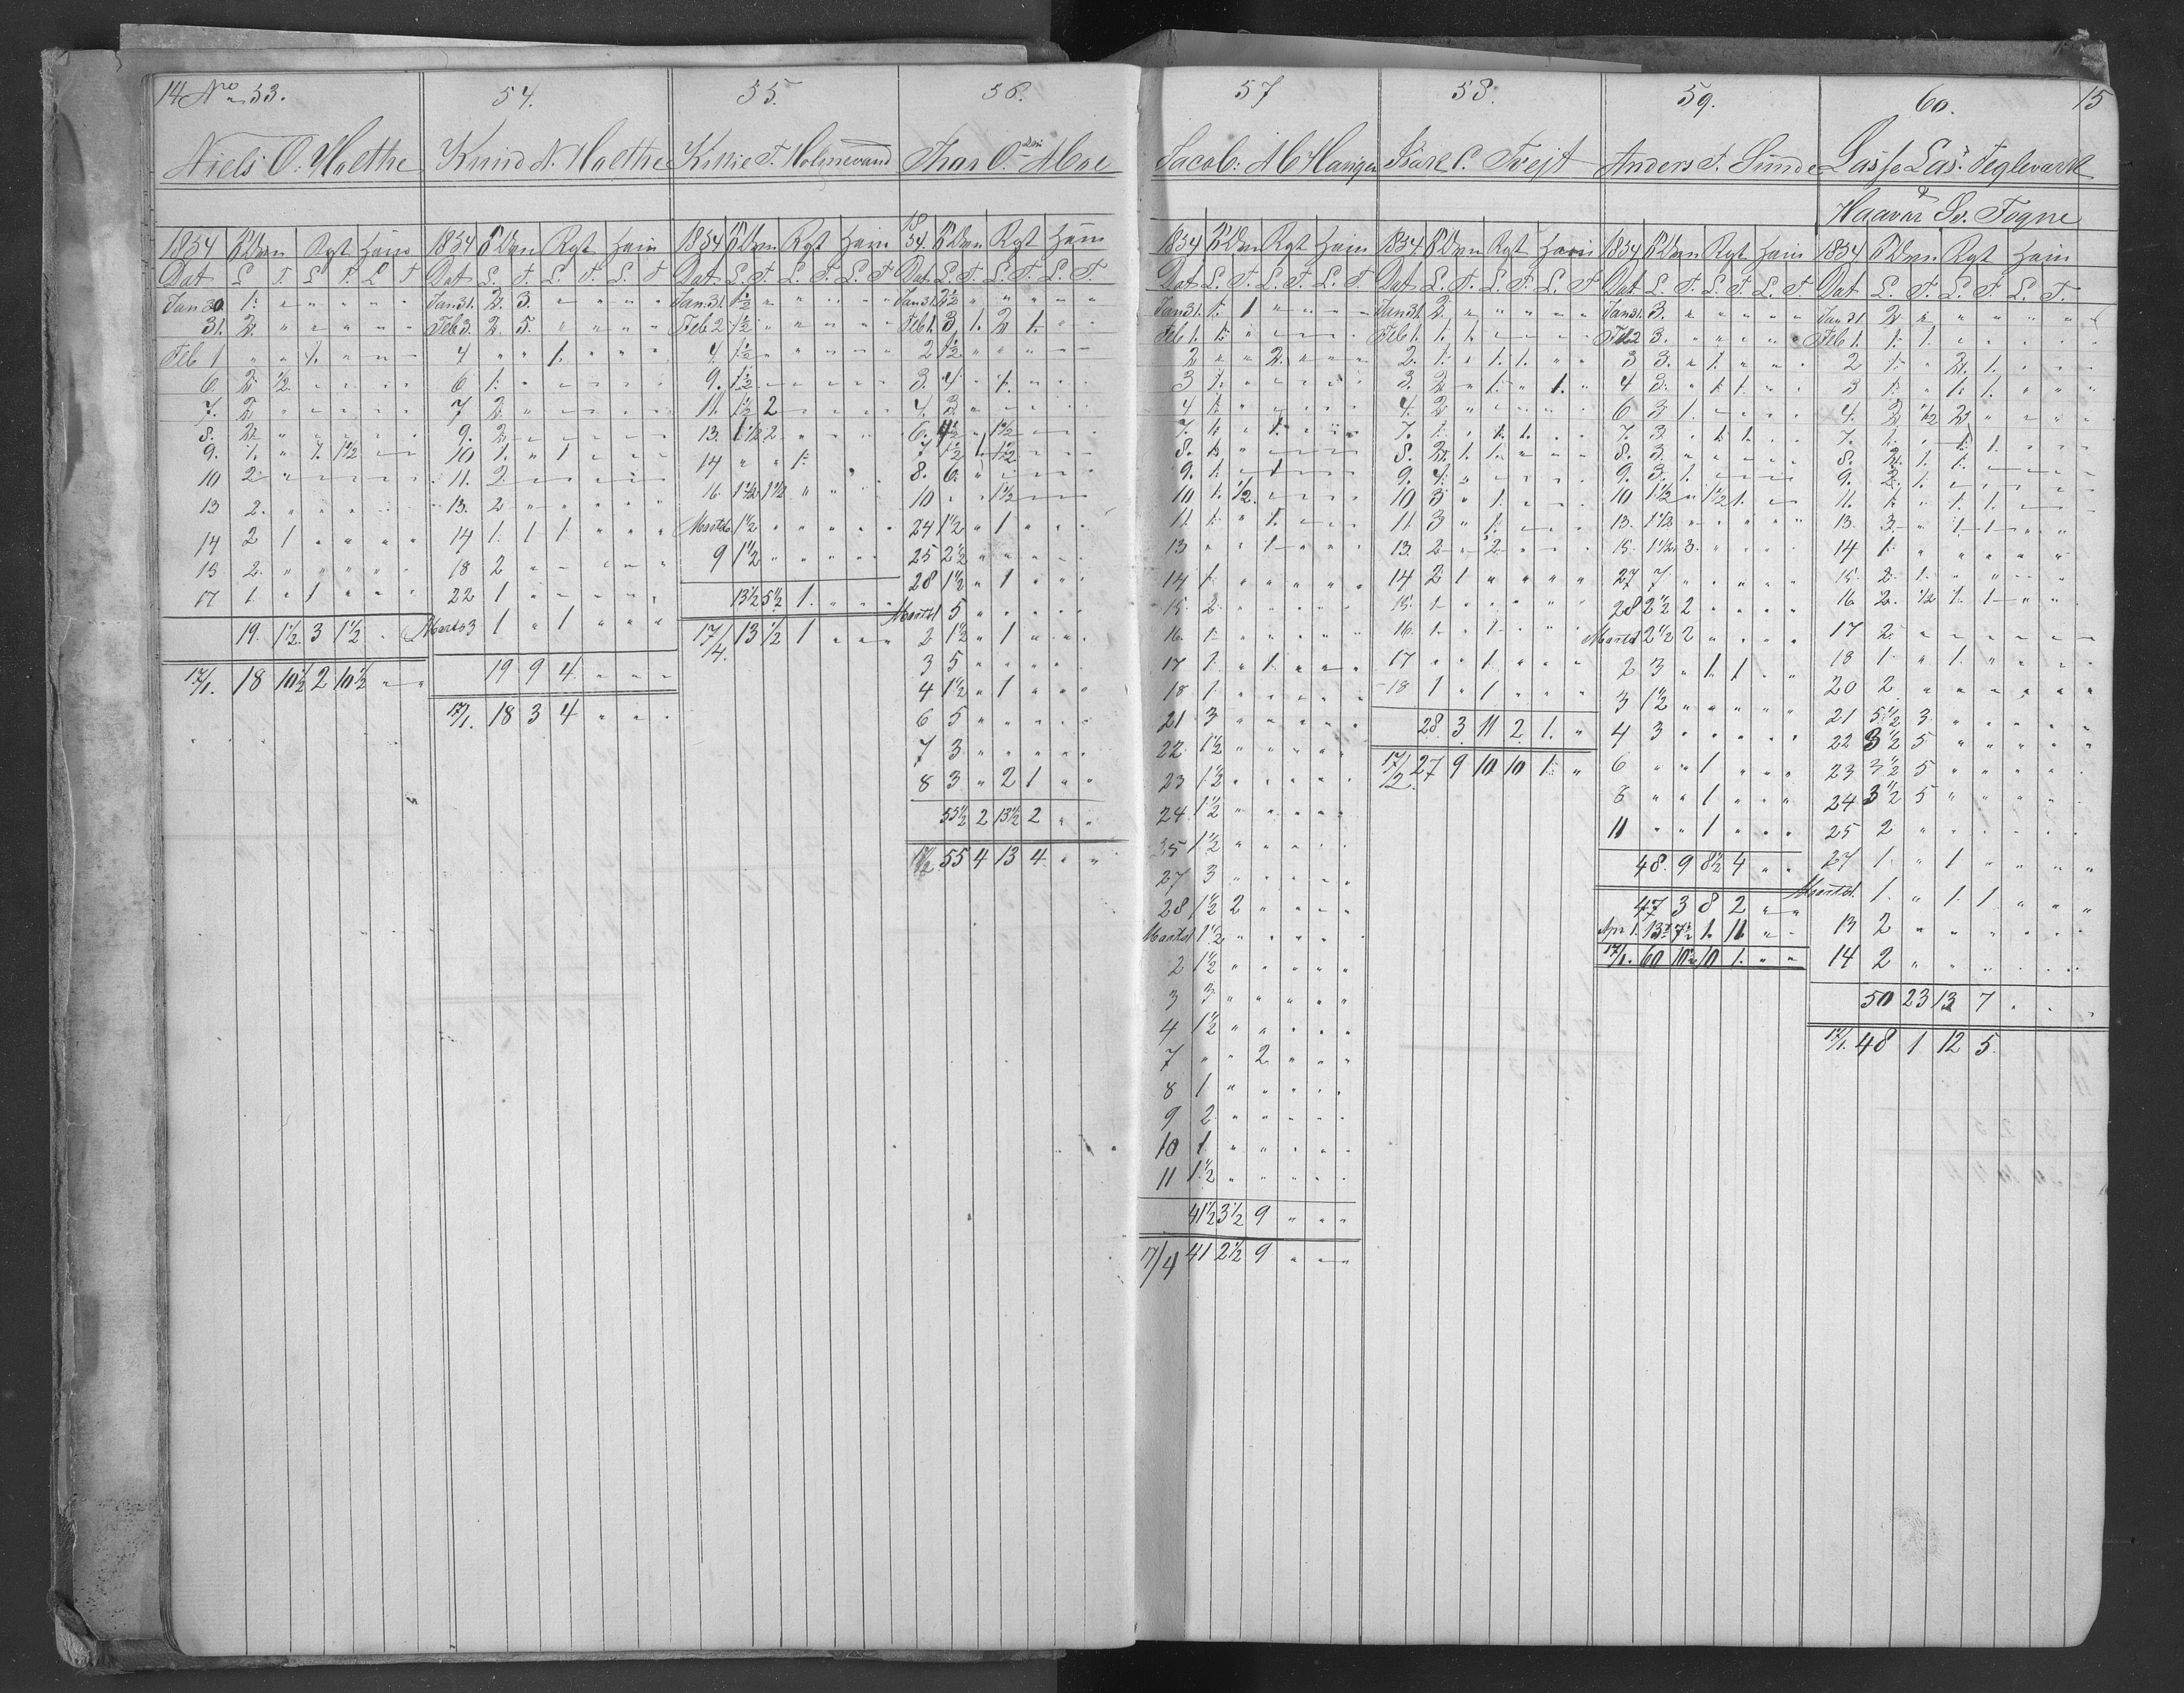 14 No 53.
Niels O. Moethe
1854
Dat L T L T L T
Jan 30 1. " " " " "
31. 2 " " " " "
Feb 1 " " 1. " " "
6. 2 1/2 " " " "
7. 2 " " " " "
8. 2 " " " " "
9. 1. " 1. 1 1/2 " "
10 2 " " " " "
13 2. " " " " "
14 2 1 " " " "
15 2. " " " " "
17 1. " 1 " " "
19. 1 1/2. 3 1 1/2 " "
17/1. 18 10 1/2 2 10 1/2 " "
54.
Knud N. Moethe
1854
Dat L. T. L. T. L. T
Jan 31. 2 3. " " " "
Feb 3. 2 5. " " " "
4 " " 1. " " "
6 1. " " " " "
7 2. " " " " "
9. 2 " " " " "
10 1. " 1 " " "
11. 2. " " " " "
13. 2 " " " " "
14 1. 1 1 " " "
18 2 " " " " "
22 1 " " " " "
Marts 3 1 " 1 " " "
19 9 4 " " "
17/1. 18 3 4 " " "
55.
Kittil T. Holmevand
1854
Dat L. T. L. T. L. T
Jan 31. 1 1/2 " " " " "
Feb 2 1 1/2 " " " " "
4 1 1/2 " " " " "
9. 1 1/2 " " " " "
11. 1 1/2 2 " " " "
13. 1 1/2 2 " " " "
14 " " 1.
16 1 1/2 1 1/2 " " " "
Marts 6 1 1/2 " " " " "
9 1 1/2 " " " " "
13 1/2 5 1/2 1. " " "
17/4. 13 1/2 1 " " "
56.
Thor O. Moe
1854.
Dat L. T. L. T. L. T.
Jan 31 2 1/2 " " " " "
Feb 1. 3 1. 2 1. " "
2 1 1/2 " " " " "
3. 4 " 1. " " "
4. 3 " " " " "
6. 4 1/2 " 1 1/2 " " "
7 1 1/2 1 1 1/2 " " "
8. 6. " " " " "
10 " " 1 1/2 " " "
24 1 1/2 " 1 " " "
25 2 1/2 " " " " "
28 1 1/2 " 1 " " "
Marts 1 5 " " " " "
2 1 1/2 " 1 " " "
3 5 " " " " "
4 1 1/2 " 1 " " "
6 5 " " " " "
7 3 " " " " "
8 3 " 2 1 " "
55 1/2 2 13 1/2 2 " "
17/2 55 4 13 4 " "
57
Jacob
1854
Dat L. T. L. T. L. T.
Jan 31. 1. 1 " " " "
Feb 1. 1. " " " " "
2 " " 2. " " "
3 1. " " " " "
4 1. " " " " "
7. 1. " 1. " " "
8. 1. " " " " "
9. 1. " 1 " " "
10 1. 1/2. " " " "
11. 1. " 1. " " "
13 " " 1 " " "
14 1. " " " " "
15. 2. " " " " "
16. 1. " " " " "
17 1. " 1. " " "
18 1. " " " " "
21. 3 " " " " "
22. 1 1/2 " " " " "
23 1 1/2 " " " " "
24 1 1/2 " " " " "
25 1 1/2 " " " " "
27 3 " " " " "
28 1 1/2 2 " " " "
Marts 1 1 1/2 " " " " "
2 1 1/2 " " " " "
3 3 " " " " "
4 1 1/2 " " " " "
7 " " 2 " " "
8 1 " " " " "
9 2 " " " " "
10 1. " " " " "
11 1 1/2 " " " " "
41 1/2 3 1/2 9 " " "
17/4 41 2 1/2 9 " " "
58.
Tvejt
1854.
Dat L. T. L. T. L. T
Jan 31. 2. " " " " "
Feb 1. 1. 1. " " " "
2. 1. " 1. 1. " "
3. 2 " 1. " 1. "
4. 2 " " " " "
7. 1. " 1. 1. " "
8. 2. 1. 1. " " "
9. 4. " " " " "
10 3 " 1. " " "
11. 3 " 1. " " "
13. 2 " 2. " " "
14 2 1 " " " "
15. 1 " " " " "
16. 1. " 1. " " "
17 " " 1. " " "
18 1 " 1 " " "
28. 3 11 2 1. "
17/2. 27 9 10 10 1. "
59.
Anders T. Sunde
1854
Dat L. T. L. T. L. T
Jan 31. 3. " " " " "
Feb 2 3. " " " " "
3 3. " 1. " " "
4 3. " 1. 1. " "
6 3 1. " " " "
7. 3 " 1. 1. " "
8. 3. " " " " "
9. 3. 1. " " " "
10 1 1/2 " 1 1/2 1. " "
13. 1 1/2 " " " " "
15. 1 1/2 3. " " " "
27 7 " " " " "
28 2 1/2 2 " " " "
Marts 1 2 1/2 2 " " " "
2 3 " 1. 1. " "
3 1 1/2 " " " " "
4 3 " " " " "
6 " " 1 " " "
8 " " 1 " " "
11 " " 1 " " "
48. 9 8 1/2 4 " "
47 3 8 2 " "
Apr 1. 13 7 1/2 1. 11 " "
17/1. 60 10 1/2 10 1. " "
60. 15
Lasse Las. Tegleværk
&
Haavar Sv. Togne
1854
Dat L. T. L. T. L. T.
Jan 31 2 " " " " "
Feb 1. 1. 1. " " " "
2 1. " 2. 1. " "
3 1. " 1. 1. " "
4. 2 1/2 2 " " "
7. 1. " 1. 1. " "
8. 2. 1. 1. " " "
9. 2. 1. " " " "
11. 1. " 1. 1. " "
13. 3. " 1. 1 " "
14 1. " " " " "
15. 2. 1. " " " "
16. 2. 1/2 1. 1 " "
17 2. " " " " "
18 1. " 1. " " "
20 2 " " " " "
21 5 1/2 3 " " " "
22 3 1/2 5 " " " "
23 3 1/2 5 " " " "
24 3 1/2 5 " " " "
25 2 " " " " "
27 1. " 1 " " "
Marts 1 1. " 1. 1 " "
13 2 " " " " "
14 2 " " " " "
50 23 13 7 " "
17/1. 48 1 12 5.